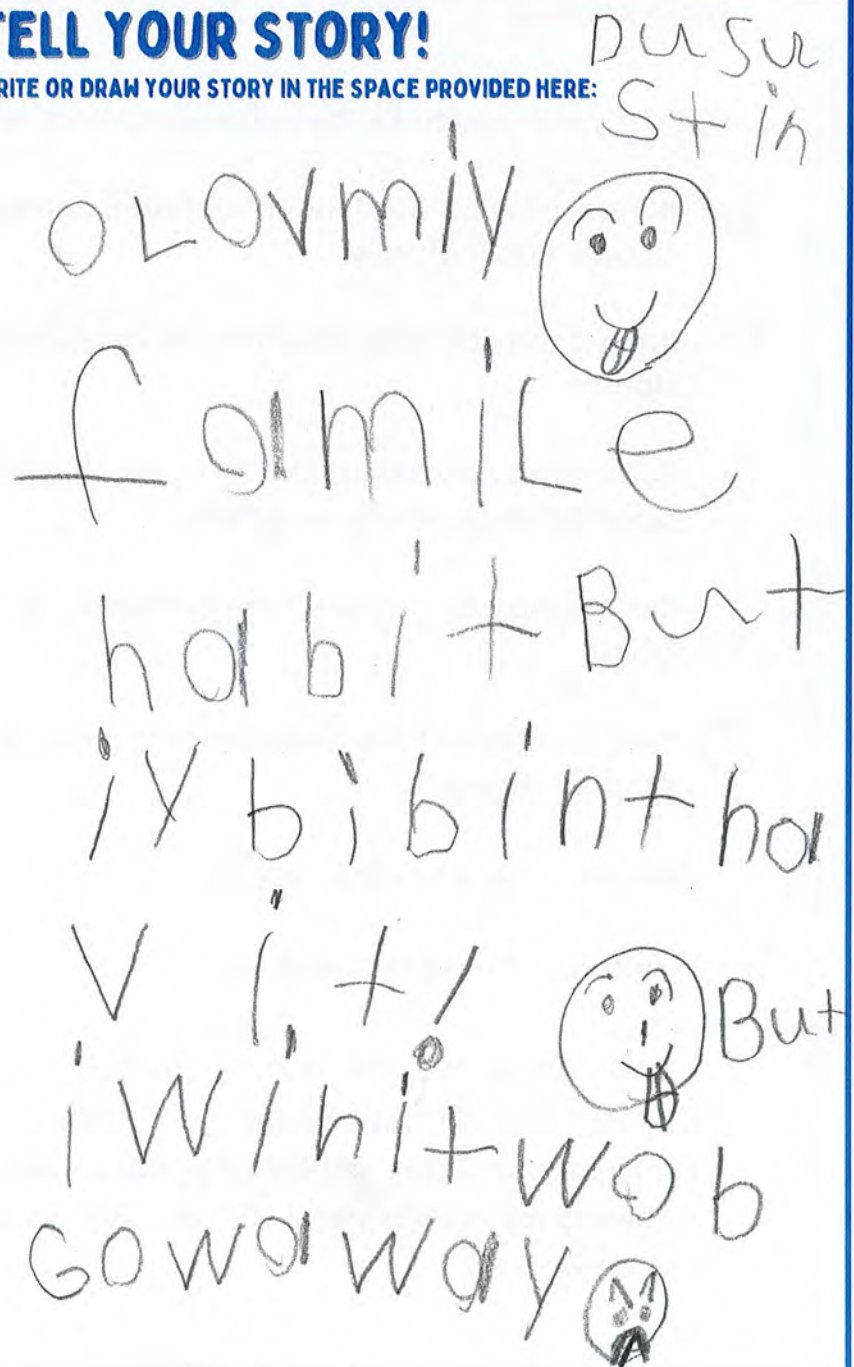 TELL YOUR STORY!
RITE OR DRAW YOUR STORY IN THE SPACE PROVIDED HERE:
Du Su
St in
oLovmiy
famiLe
habit But
iy bibint ha
V it!
But
iWinit wob
Gowaway